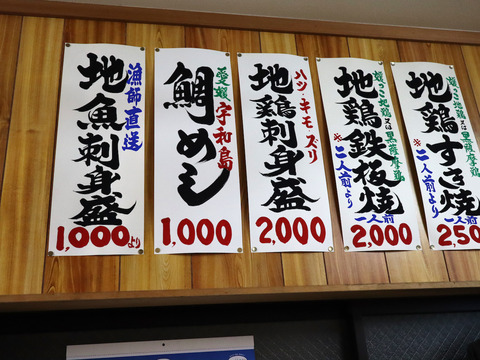 漁師直送
地魚刺身盛
1,000より
愛媛宇和島
鯛めし
1,000
ハツ・キモ・ズリ
地鶏刺身盛
2,000
媛っこ地鶏又は黒薩摩鶏
地鶏鉄板焼
※二人前より
一人前
2,000
媛っこ地鶏又は黒薩摩鶏
地鶏すき焼
※二人前より
一人前